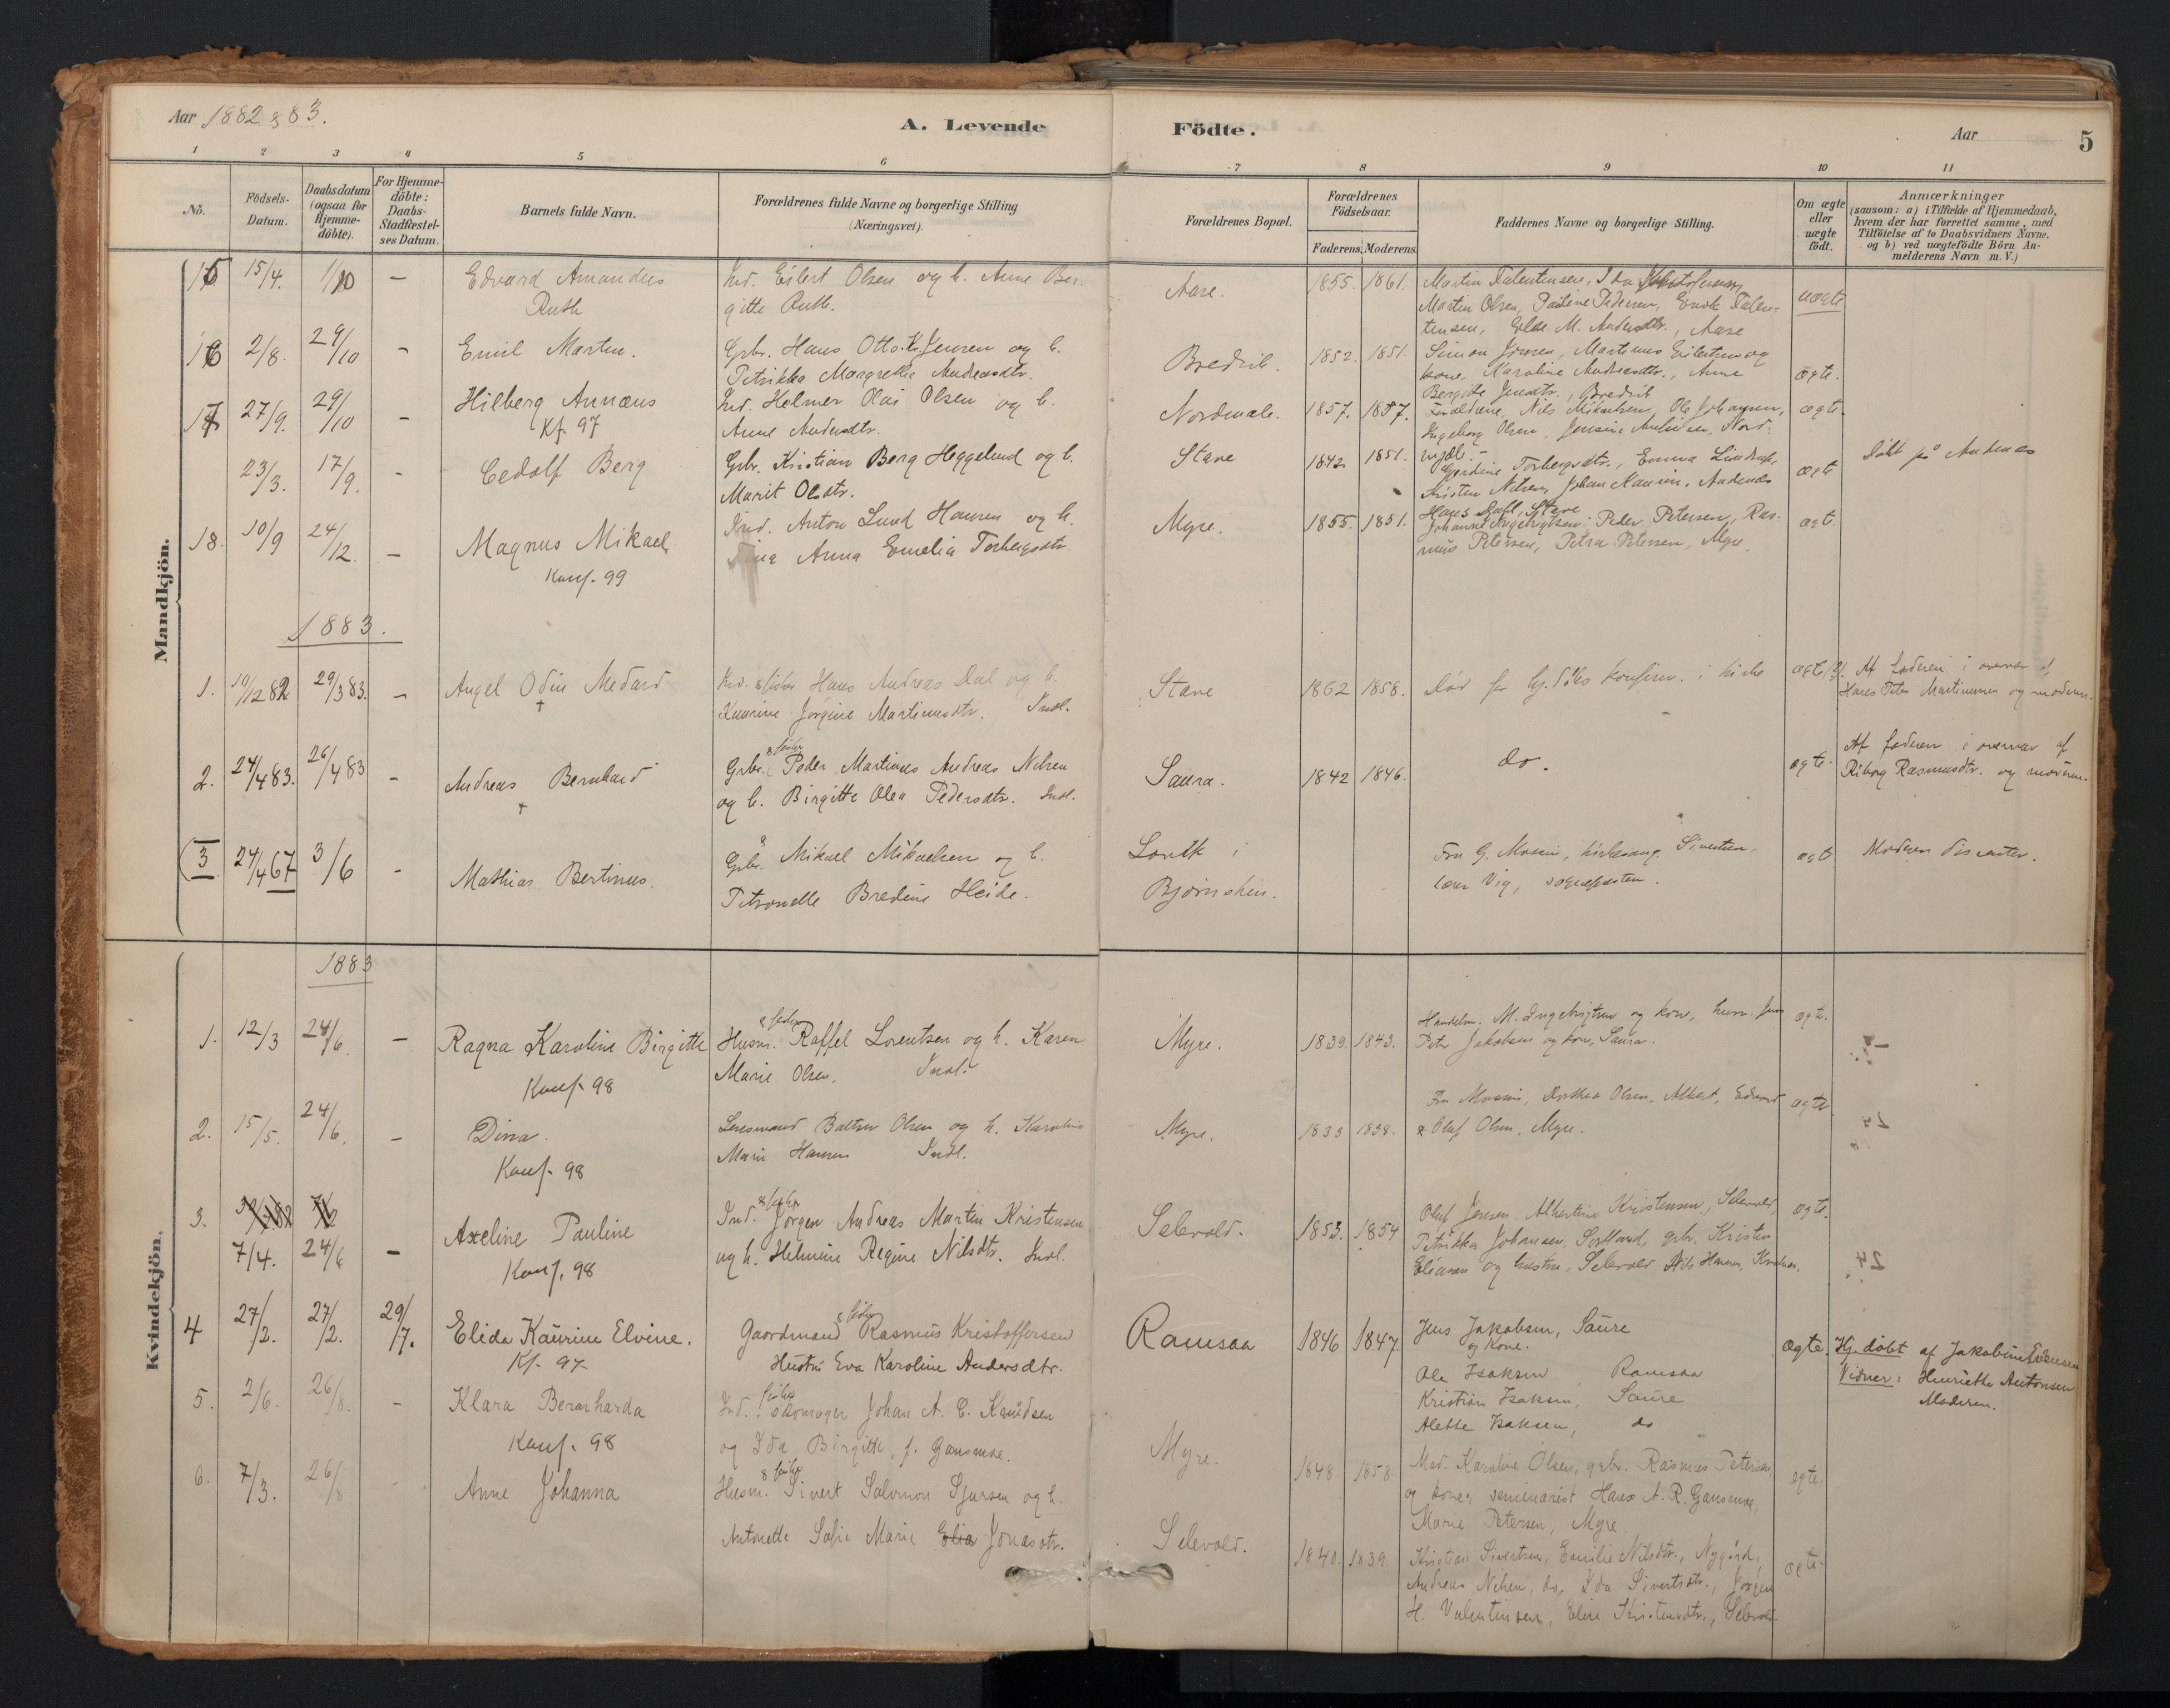 Aar 1882 & 83.
A. Levende
Födte.
Aar
5
1 2 3 4 5 6 7 8 9 10 11
No.
Födsels-
Datum.
Daabsdatum
(ogsaa for
Hjemme-
döbte).
For Hjemme-
döbte:
Daabs-
Stadfæstel-
ses Datum.
Barnets fulde Navn.
Forældrenes fulde Navne og borgerlige Stilling
(Næringsvei).
Forældrenes Bopæl.
Forældrenes
Födselsaar.
Faderens. Moderens.
Faddernes Navne og borgerlige Stilling.
Om ægte
eller
uægte
födt.
Anmærkninger
(saasom: a) i Tilfælde af Hjemmedaab,
hvem der har forrettet samme, med
Tilföielse af to Daabsvidners Navne,
og b) ved uægtefödte Börn An-
melderens Navn m. V.)
Mandkjön.
15 15/4. 1/10 – Edvard Amandus
Ruth
Ind. Eilert Olsen og h. Anne Ber-
gitte Ruth.
Aase. 1855. 1861.
Martin Valentinsen, Ida
Martin Olsen, Pauline Pedersen, Enok Valen-
tinsen, M. Andersdtr., Aase
uægte
16 2/8. 29/10 – Emil Martin.
Grbr. Hans Otto Kr. Jensen og h.
Petrikka Margrethe Andreasdtr.
Bredvik. 1852. 1851.
Simon Jensen, Martinus Eilertsen og
kone, Karoline Andreasdtr., Anne
Bergitte Jensdtr., Bredvik
ægte.
17 27/9. 29/10 – Hilberg Annæus
Kf. 97
Ind. Helmer Olai Olsen og h.
Anne Andersdtr.
Nordmæle. 1857. 1857.
Forældrene, Nils Mikaelsen, Ole Johansen,
Ingeborg Olsen, Jensine Andersen, Nord-
mjæle.
ægte.
23/3. 17/9. – Cedolf Berg
Grbr. Kristian Berg Heggelund og h.
Marit Olsdtr.
Stave 1842 1851.
Gjertine Torbergsdtr., Emma
Kristen Nilsen, Johan Kaurin, Andenes
Hans Dahl, Stave
ægte
Døbt på Andenes
18. 10/9 24/12. – Magnus Mikael
Konf. 99
Ind. Anton Lund Hansen og h.
Anna Emelia Torbergsdtr.
Myre. 1855. 1851.
Johanne Ingebrigtsen, Peder Petersen, Ras-
mus Petersen, Petra Petersen, Myre.
ægt.
1883.
1. 10/12 82 29/3 83. – Angel Odin Medard
†
Ind. & fisker Hans Andreas Dal og h.
Kaurine Jorgine Martinusdtr. Indl.
Stave 1862 1858.
Død før hj.døbs konfirm. i kirke
ægte
Af faderen i overvær af
Hans Peter Martinusen og moderen.
2. 24/4 83. 26/4 83 – Andreas Bernhard
†
Grbr. & fisker Peder Martinus Andreas Nilsen
og h. Birgitte Olea Pedersdtr. Indl.
Saura. 1842 1846.
do.
ægte.
Af faderen i overvær af
Riborg Rasmusdtr. og moderen.
(3 24/4 67 3/6 – Mathias Bertinus.
Grbr. Mikael Mikaelsen og h.
Petronelle Bredine Heide.
Lovik i
Bjørnskin.
Fru G. Mossin, kirkesang. Sivertsen.
lærer Vig, sognepresten.
ægt.
Moderen dissenter.
Kvindekjön.
1883
1. 12/3 24/6. – Ragna Karoline Birgitte
Konf. 98
Husm. & fisker Raffel Lorentsen og h. Karen
Marie Olsen. Indl.
Myre. 1839. 1843.
Handelsm. M. Ingebrigtsen og kone, husm. Jens
Peter Jakobsen og kone, Saura.
ægte.
2. 15/5. 24/6. – Dina.
Konf. 98
Lensmand Baltser Olsen og h. Karoline
Marie Hansen Indl.
Myre. 1833 1838.
Fru Mossin, Dorthea Olsen, Albert, Edvard
& Oluf Olsen, Myre.
ægte.
3. 7/4. 24/6 – Axeline Pauline
Konf. 98
Ind. & fisker Jørgen Andreas Martin Kristensen
og h. Helmine Regine Nilsdtr. Indl.
Selevold. 1853. 1854
Oluf Jensen, Albertine Kristensen, Selevold,
Petrikka Johansen, Sortland, grbr. Kristen
Eliasen og hustru, Selevold, Nils Hansen,
ægte.
4 27/2. 27/2. 29/7. Elida Kaurine Elvine.
Kf. 97
Gaardmand & fisker Rasmus Kristoffersen
Hustru Eva Karoline Andersdtr.
Ramsaa 1846 1847.
Jens Jakobsen, Saure
og Kone.
Ole Isaksen Ramsaa
Kristian Isaksen, Saure
Alette Isaksen, do
ægte.
Hj.døbt af Jakobine Evensen
Vidner: Henriette Antonsen
Moderen.
5. 2/6. 26/8. – Klara Bernharda
Konf. 98
Ind. fisker skomager Johan A. C. Knudsen
og Ida Birgitte, f. Gansmoe.
Myre. 1848 1858.
Mad. Karoline Olsen, grbr. Rasmus Petersen
og kone, seminarist Hans A. R. Gansmoe,
Marie Petersen, Myre.
ægte.
6. 7/3. 26/8 Anne Johanna
Husm. & fisker Sivert Salomon Sjursen og h.
Antonette Sofie Marie Elia Jonasdtr.
Selevold. 1840. 1839.
Kristian Sivertsen, Emilie Nilsdtr., Nygård,
Andreas Nilsen, do, Ida Sivertsdtr., Jørgen
H. Valentinsen, Eline Kristensdtr., Selevold.
ægte.